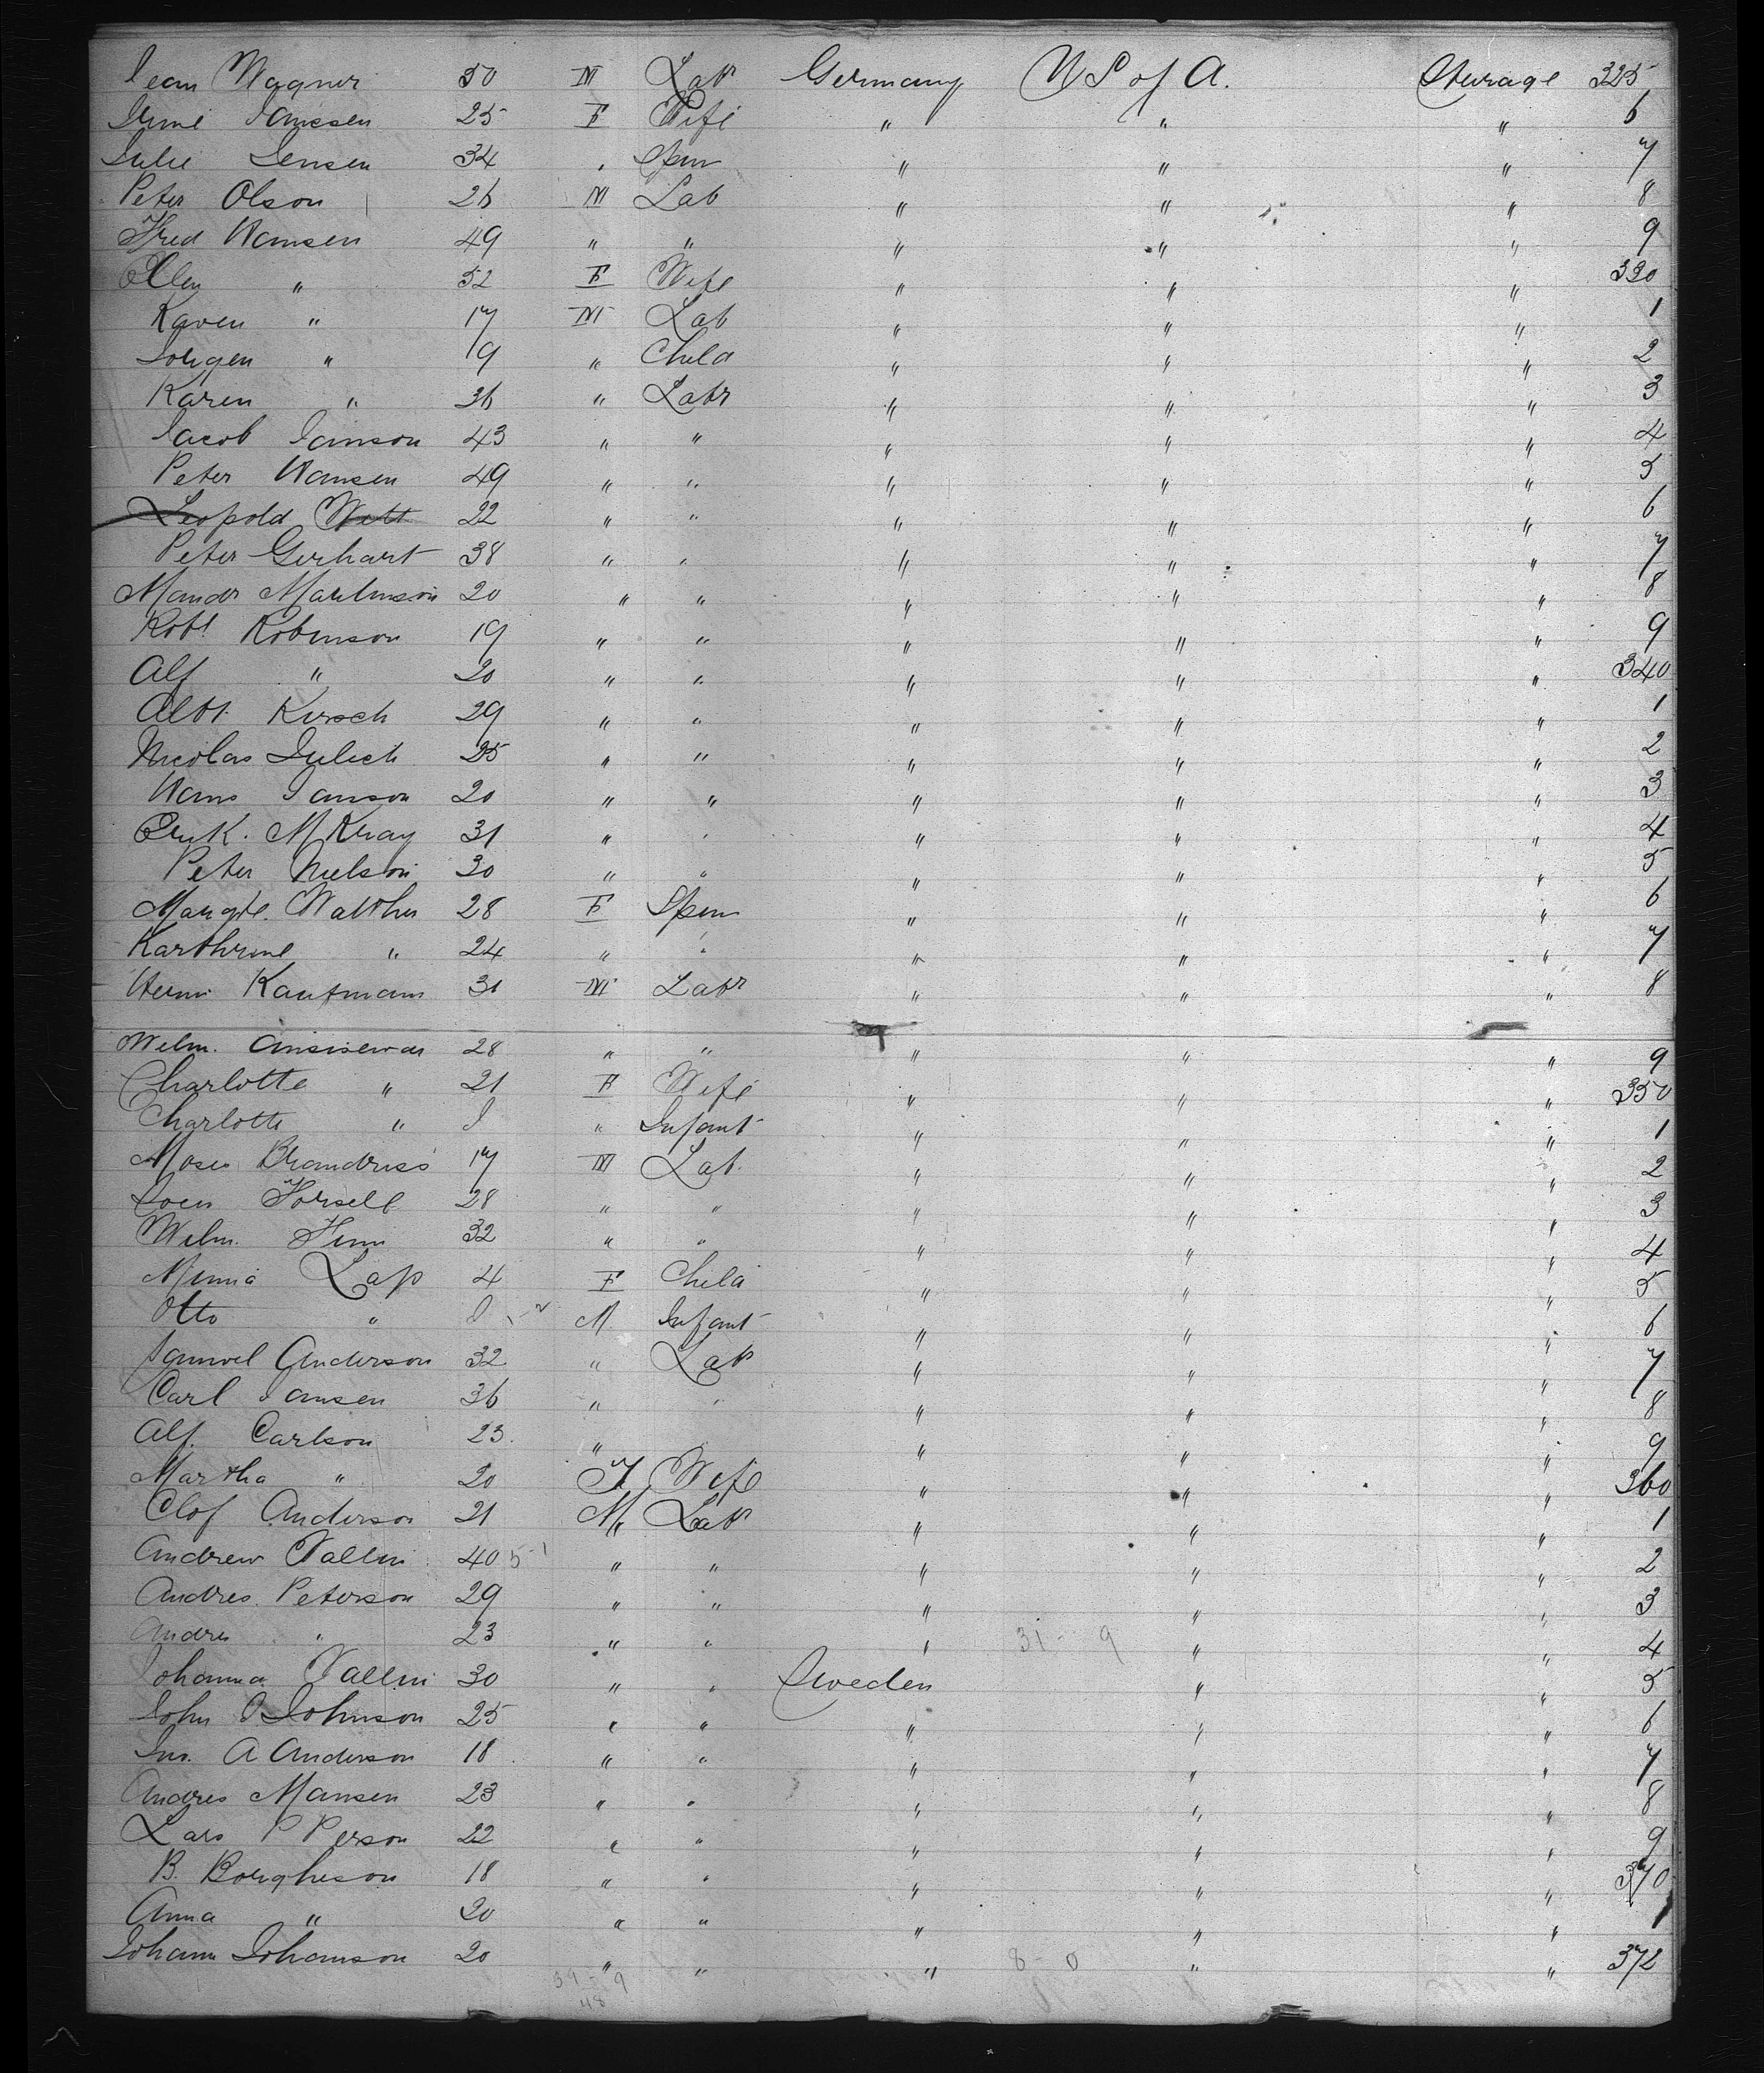 Jean Wagner 30 M Labr Germany U S of A. Steerage 325
Janssen 25 F Wife " " " 6
Julie Jensen 34 " Spin " " " 7
Peter Olson 26 M Lab " " " 8
Fred Hansen 49 " " " " " 9
Ellen " 52 F Wife " " " 330
Karen " 17 M Lab " " " 1
Jorgen " 9 " Child " " " 2
Karen " 36 " Labr " " " 3
Jacob Janson 43 " " " " " 4
Peter Hansen 49 " " " " " 5
Leopold Witt 22 " " " " " 6
Peter Gerhart 38 " " " " " 7
20 " " " " " 8
Robt Robinson 19 " " " " " 9
Alf " 20 " " " " " 340
Albt. Kirsch 29 " " " " " 1
Nicolas Julich 25 " " " " " 2
Hans Janson 20 " " " " " 3
Erik. M Kray 31 " " " " " 4
Peter Nielson 30 " " " " " 5
Margte. Walther 28 F Spin " " " 6
Karthrine " 24 " " " " " 7
Herm Kaufmann 31 M Labr " " " 8
Welm. 28 " " " " " 9
Charlotte " 21 F Wife " " " 350
Charlotte " I " Infant " " " 1
Moses Brandriss 17 M Lab. " " " 2
Forsell 28 " " " " " 3
Welm. 32 " " " " " 4
Minna Lap 4 F Child " " " 5
Otto " I M Infant " " " 6
Samuel Anderson 32 " Labr " " " 7
Carl Jansen 36 " " " " " 8
Alf. Carlson 23. " " " " 9
Martha " 20 F Wife " " " 360
Olof Anderson 21 M Labr " " " 1
Andrew Vallin 40 " " " " " 2
Andres. Peterson 29 " " " " " 3
Andres " 23 " " " 31 - 9 " " 4
Johanna Vallin 30 " " Sweden " " 5
John Johnson 25 " " " " " 6
Jno. A Anderson 18 " " " " " 7
Andres Mansen 23 " " " " " 8
Lars P Person 22 " " " " " 9
B. Borgheson 18 " " " " " 370
Anna " 20 " " " " " 1
Johann Johanson 20 " " " 8 - 0 " " 372